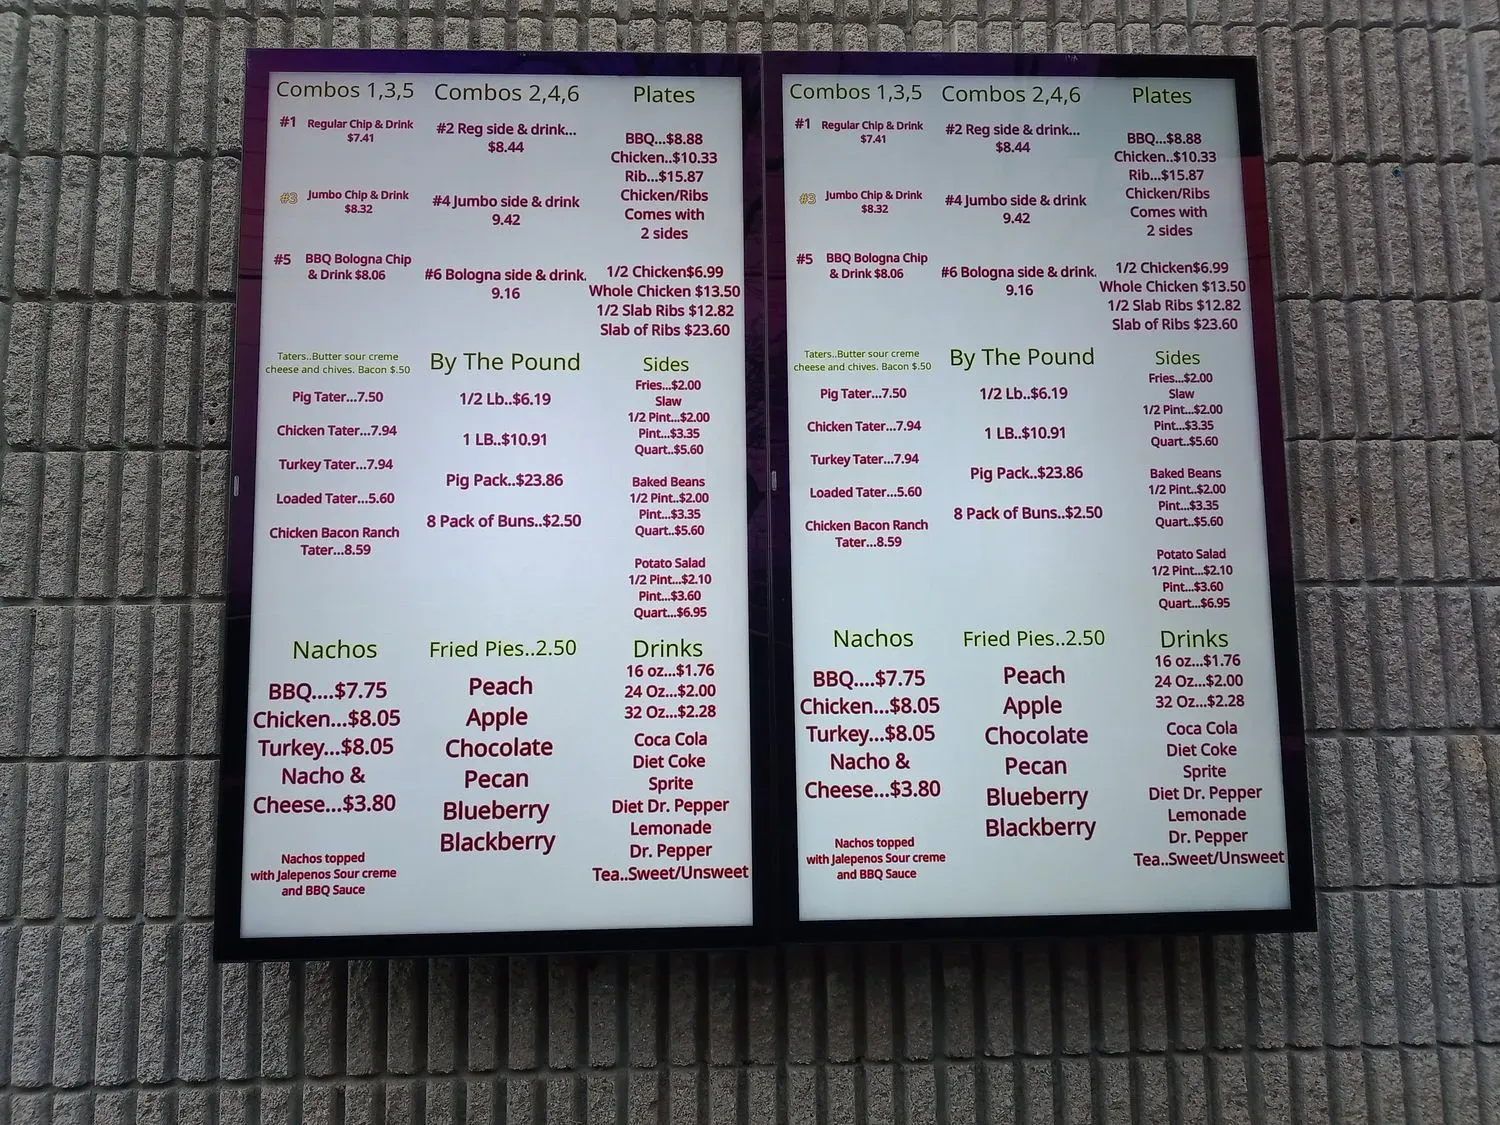 Combos 1,3,5
#1 Regular Chip & Drink
$7.41
#3 Jumbo Chip & Drink
$8.32
#5 BBQ Bologna Chip
& Drink $8.06
Combos 2,4,6
#2 Reg side & drink...
$8.44
#4 Jumbo side & drink
9.42
#6 Bologna side & drink.
9.16
Plates
BBQ...$8.88
Chicken..$10.33
Rib...$15.87
Chicken/Ribs
Comes with
2 sides
1/2 Chicken$6.99
Whole Chicken $13.50
1/2 Slab Ribs $12.82
Slab of Ribs $23.60
Taters..Butter sour creme
cheese and chives. Bacon $.50
Pig Tater...7.50
Chicken Tater...7.94
Turkey Tater...7.94
Loaded Tater...5.60
Chicken Bacon Ranch
Tater...8.59
By The Pound
1/2 Lb..$6.19
1 LB..$10.91
Pig Pack..$23.86
8 Pack of Buns..$2.50
Sides
Fries...$2.00
Slaw
1/2 Pint...$2.00
Pint...$3.35
Quart..$5.60
Baked Beans
1/2 Pint...$2.00
Pint...$3.35
Quart...$5.60
Potato Salad
1/2 Pint...$2.10
Pint...$3.60
Quart...$6.95
Nachos
BBQ....$7.75
Chicken...$8.05
Turkey...$8.05
Nacho &
Cheese...$3.80
Nachos topped
with Jalepenos Sour creme
and BBQ Sauce
Fried Pies..2.50
Peach
Apple
Chocolate
Pecan
Blueberry
Blackberry
Drinks
16 oz...$1.76
24 Oz...$2.00
32 Oz...$2.28
Coca Cola
Diet Coke
Sprite
Diet Dr. Pepper
Lemonade
Dr. Pepper
Tea..Sweet/Unsweet
Combos 1,3,5
#1 Regular Chip & Drink
$7.41
#3 Jumbo Chip & Drink
$8.32
#5 BBQ Bologna Chip
& Drink $8.06
Combos 2,4,6
#2 Reg side & drink...
$8.44
#4 Jumbo side & drink
9.42
#6 Bologna side & drink.
9.16
Plates
BBQ...$8.88
Chicken..$10.33
Rib...$15.87
Chicken/Ribs
Comes with
2 sides
1/2 Chicken$6.99
Whole Chicken $13.50
1/2 Slab Ribs $12.82
Slab of Ribs $23.60
Taters..Butter sour creme
cheese and chives. Bacon $.50
Pig Tater...7.50
Chicken Tater...7.94
Turkey Tater...7.94
Loaded Tater...5.60
Chicken Bacon Ranch
Tater...8.59
By The Pound
1/2 Lb..$6.19
1 LB..$10.91
Pig Pack..$23.86
8 Pack of Buns..$2.50
Sides
Fries...$2.00
Slaw
1/2 Pint...$2.00
Pint...$3.35
Quart..$5.60
Baked Beans
1/2 Pint...$2.00
Pint...$3.35
Quart...$5.60
Potato Salad
1/2 Pint...$2.10
Pint...$3.60
Quart...$6.95
Nachos
BBQ....$7.75
Chicken...$8.05
Turkey...$8.05
Nacho &
Cheese...$3.80
Nachos topped
with Jalepenos Sour creme
and BBQ Sauce
Fried Pies..2.50
Peach
Apple
Chocolate
Pecan
Blueberry
Blackberry
Drinks
16 oz...$1.76
24 Oz...$2.00
32 Oz...$2.28
Coca Cola
Diet Coke
Sprite
Diet Dr. Pepper
Lemonade
Dr. Pepper
Tea..Sweet/Unsweet